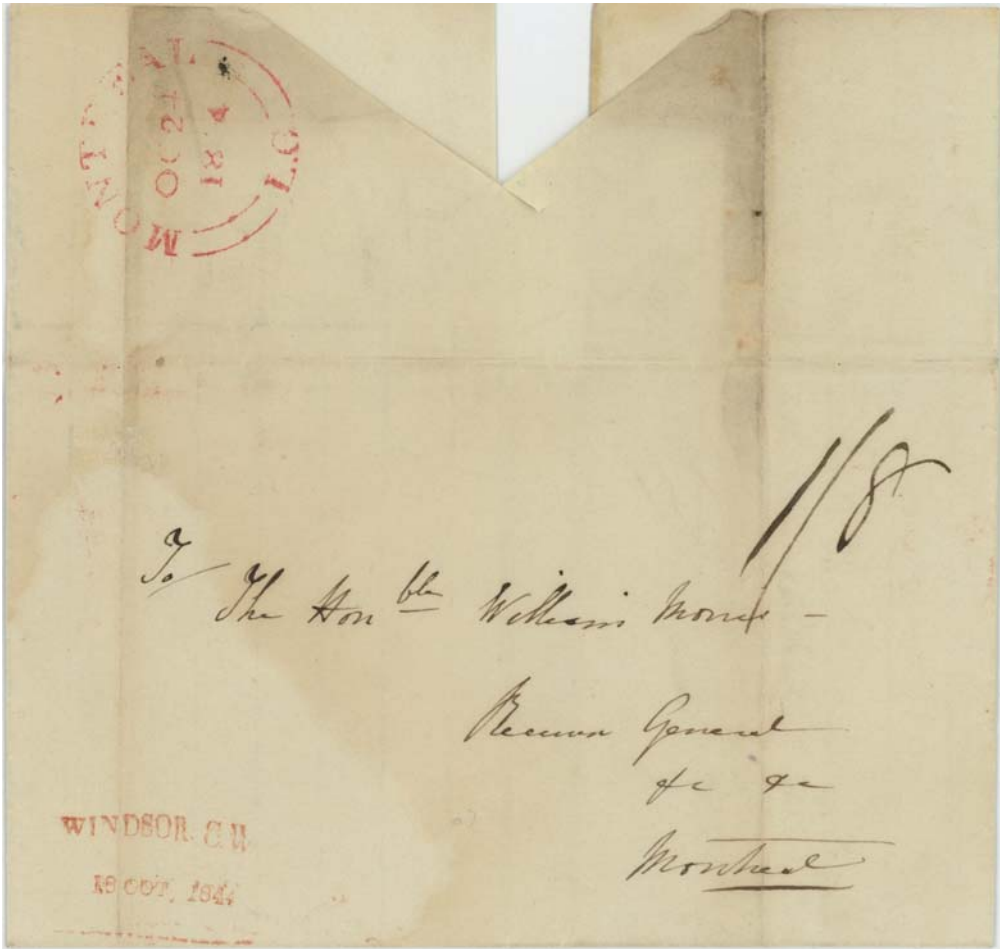 MONTREAL L.C
OC 24
18 4
1/8
To
The Honble William Morris –
Receiver General
&c &c
Montreal
WINDSOR. C.W
18 OCT, 1844